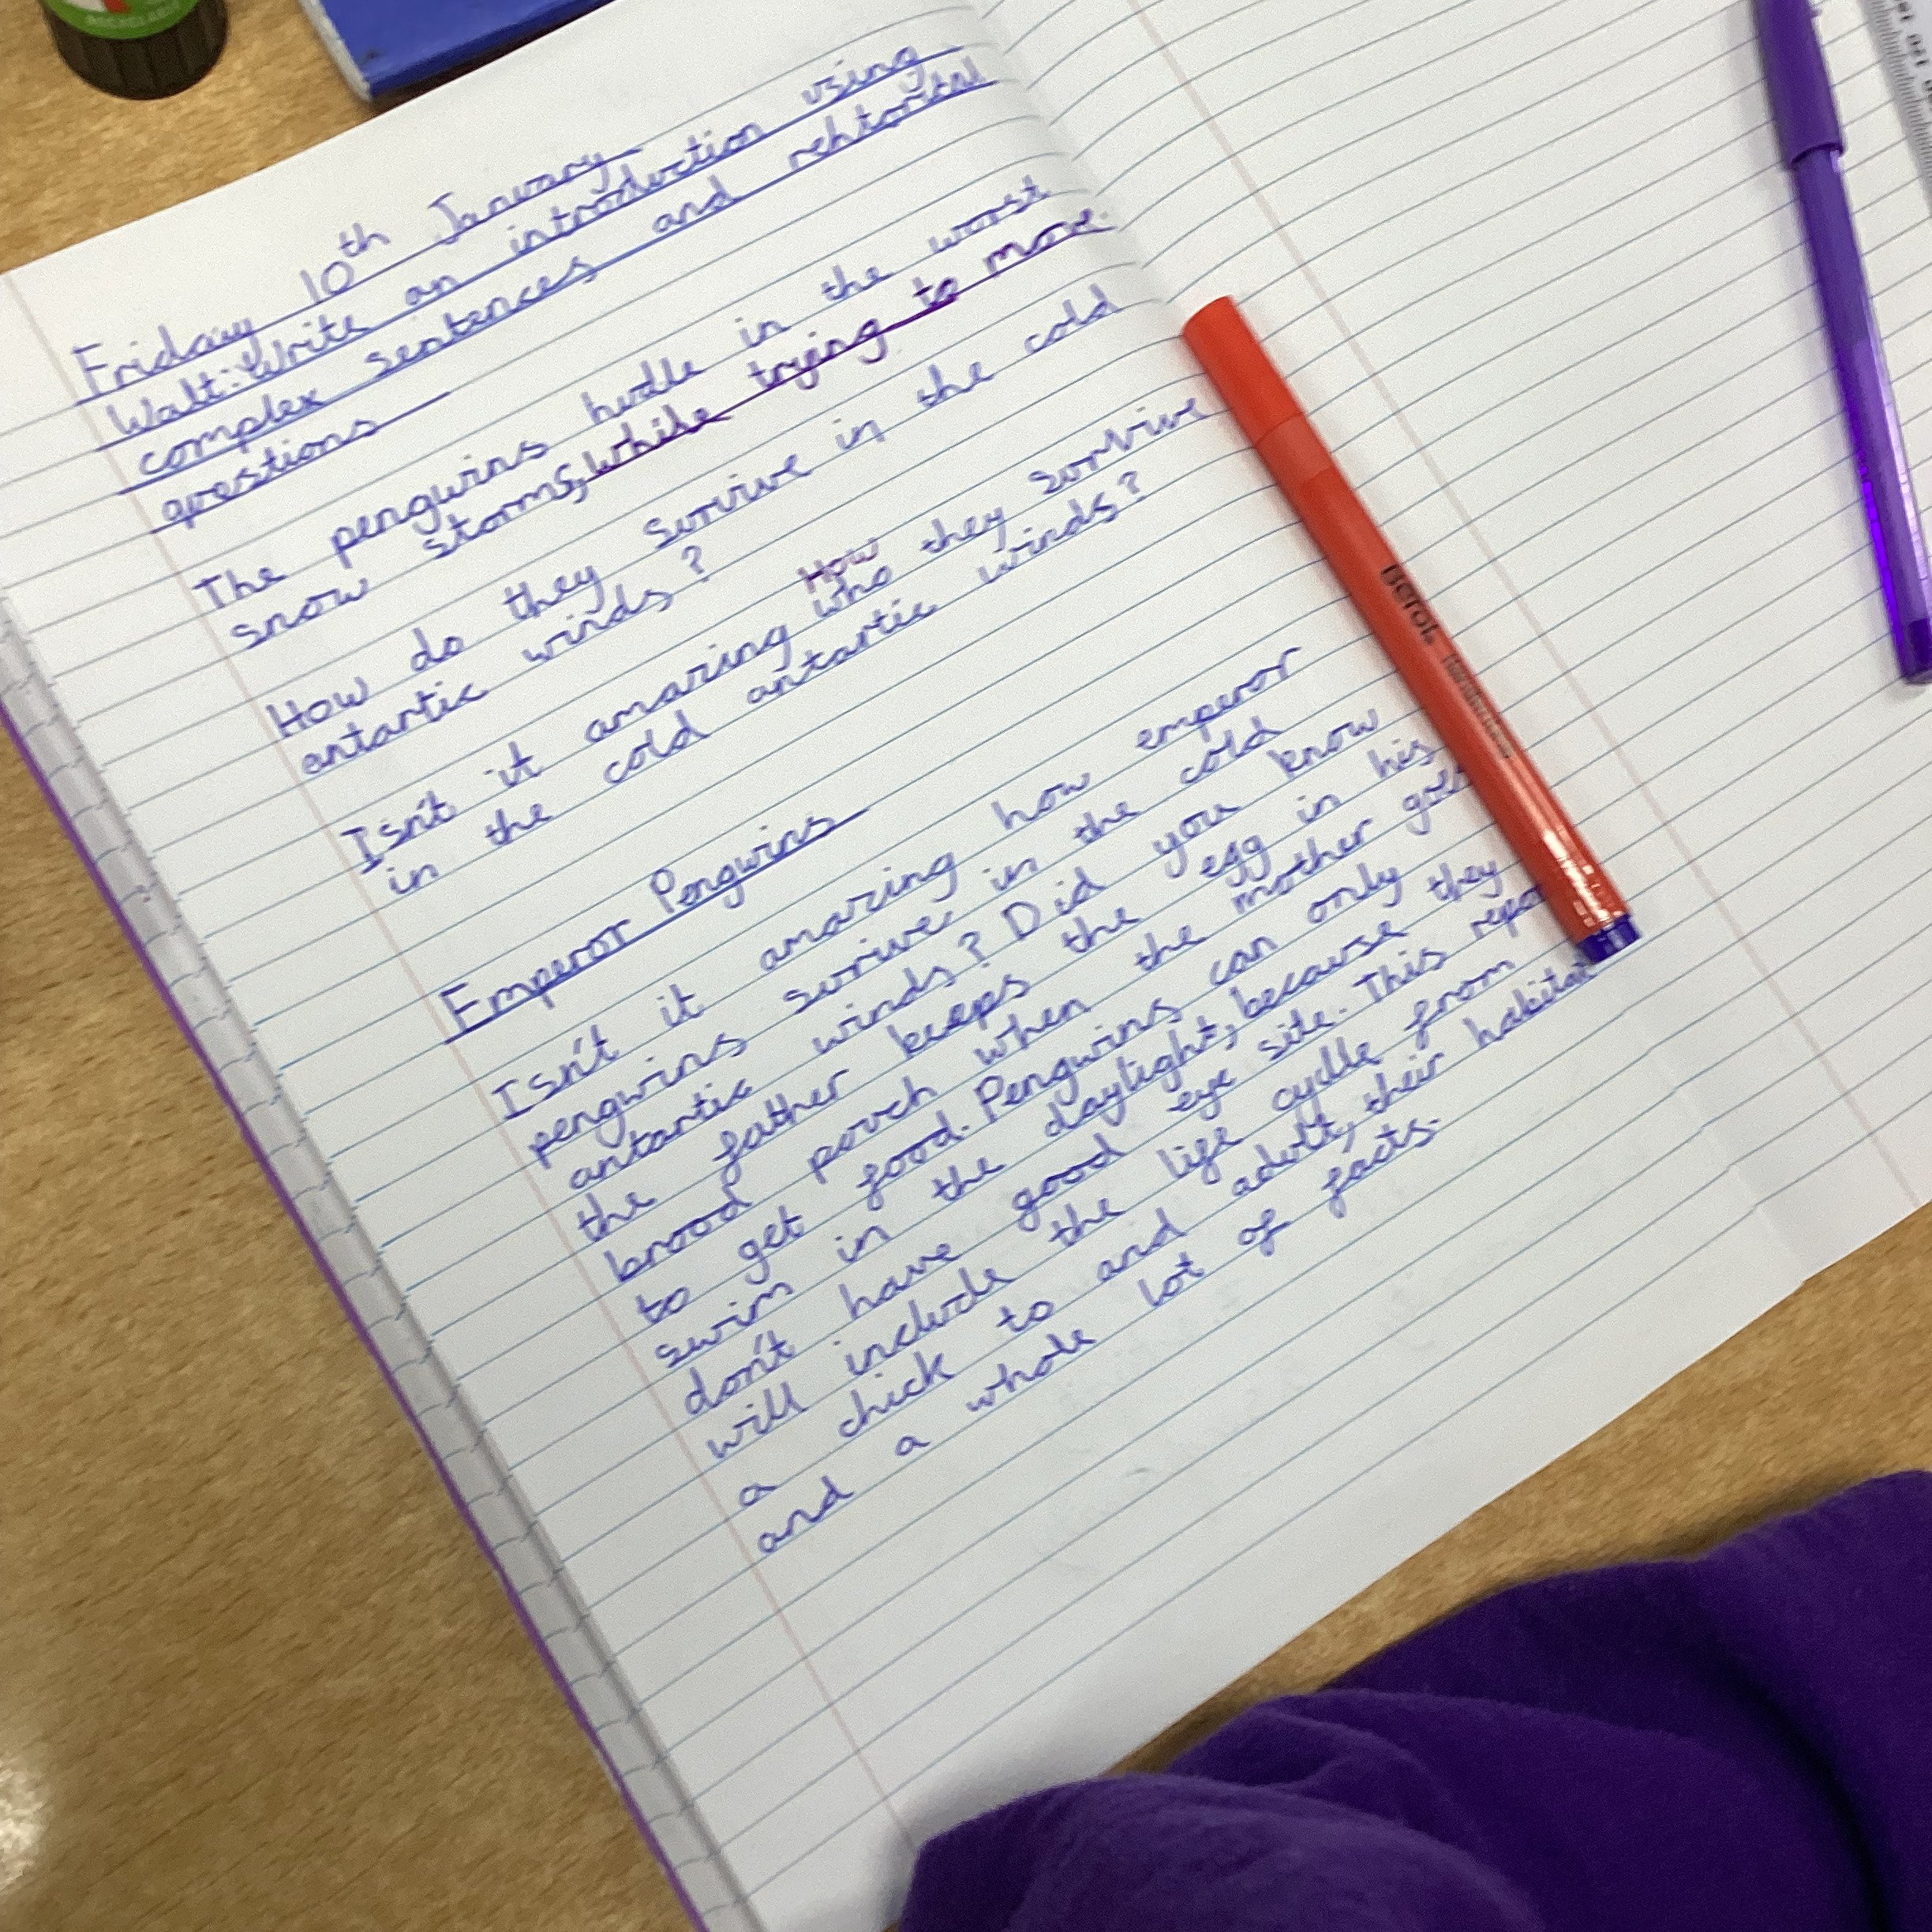 Friday 10th January
Walt: Write an introduction using
complex sentences and rehtorical
questions
The pengwins hudle in the worst
snow storms, while trying to move.
How do they survive in the cold
antartic winds?
How
Isn't it amazing who they survive
in the cold antartic winds?
Emperor Pengwins
Isn't it amazing how emperor
pengwins surive in the cold
antartic winds? Did you know
the father keeps the egg in his
brood pouch when the mother
to get food. Pengwins can only
swim in the daylight, because they
don't have good eye site. This
will include the life cycle from
a chick to and adult, their habitat
and a whole lot of facts.
Berol